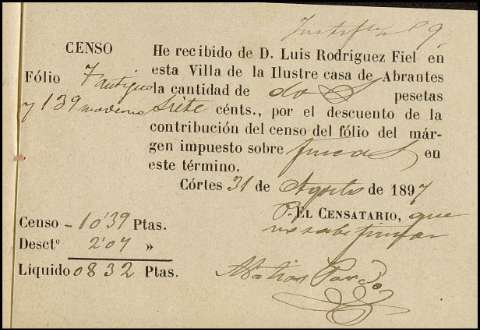 Justifte 89.
CENSO
Fólio 7 antiguo
y 139 moderno
He recibido de D. Luis Rodríguez Fiel en
esta Villa de la Ilustre casa de Abrantes
la cantidad de dos pesetas
siete cénts., por el descuento de la
contribución del censo del fólio del már-
gen impuesto sobre fincas en
este término.
Córtes 31 de Agosto de 1897
P. EL CENSATARIO, que
no sabe firmar
Censo - 10'39 Ptas.
Desctº 2'07 »
Líquido 0832 Ptas.
Matias Pardo